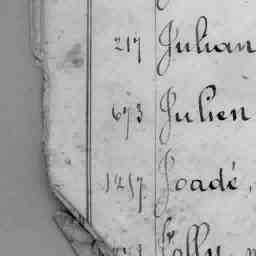 217 Julian
673 Julien
1217 Joadé,
Jolly